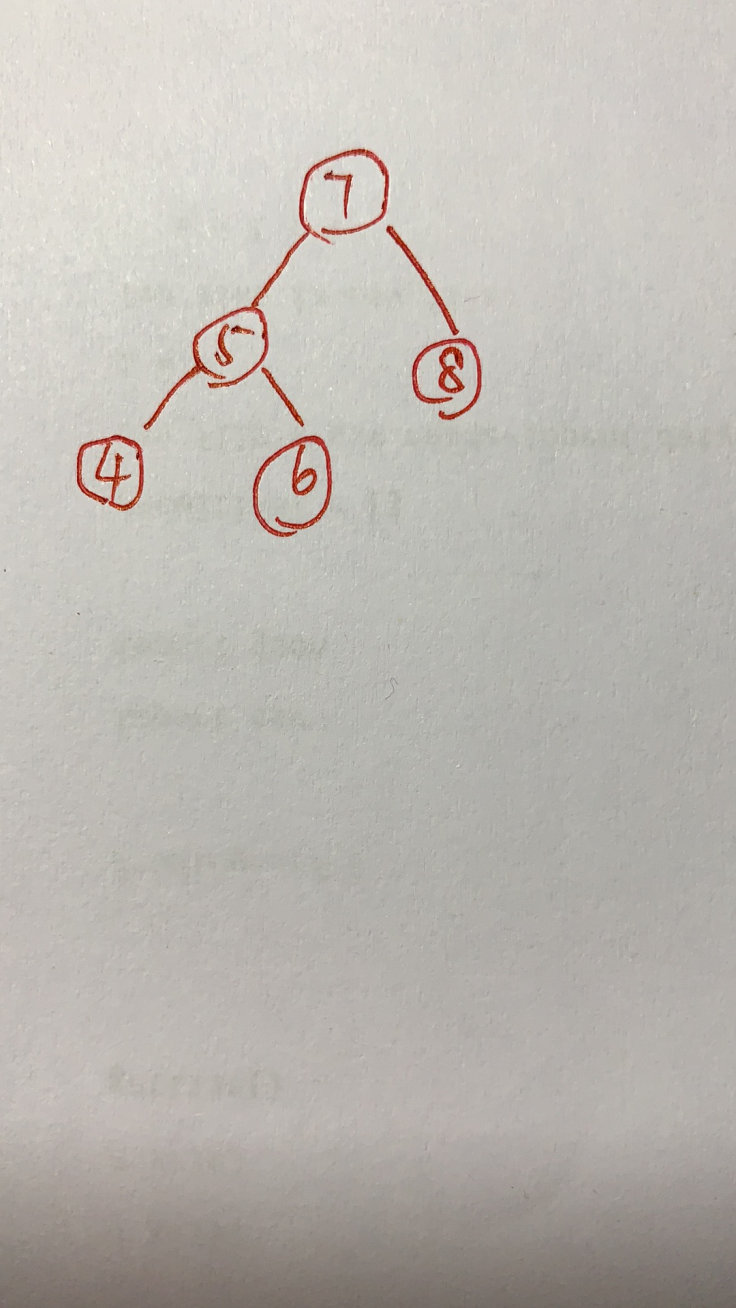 7
5
8
4 6